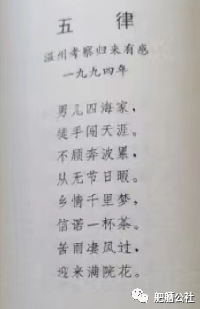 五 律
温州考察归来有感
一九九四年
男儿四海家，
徒手闯天涯。
不顾奔波累，
从无节日暇。
乡情千里梦，
信诺一杯茶。
苦雨凄风过，
迎来满院花。
舥艚公社